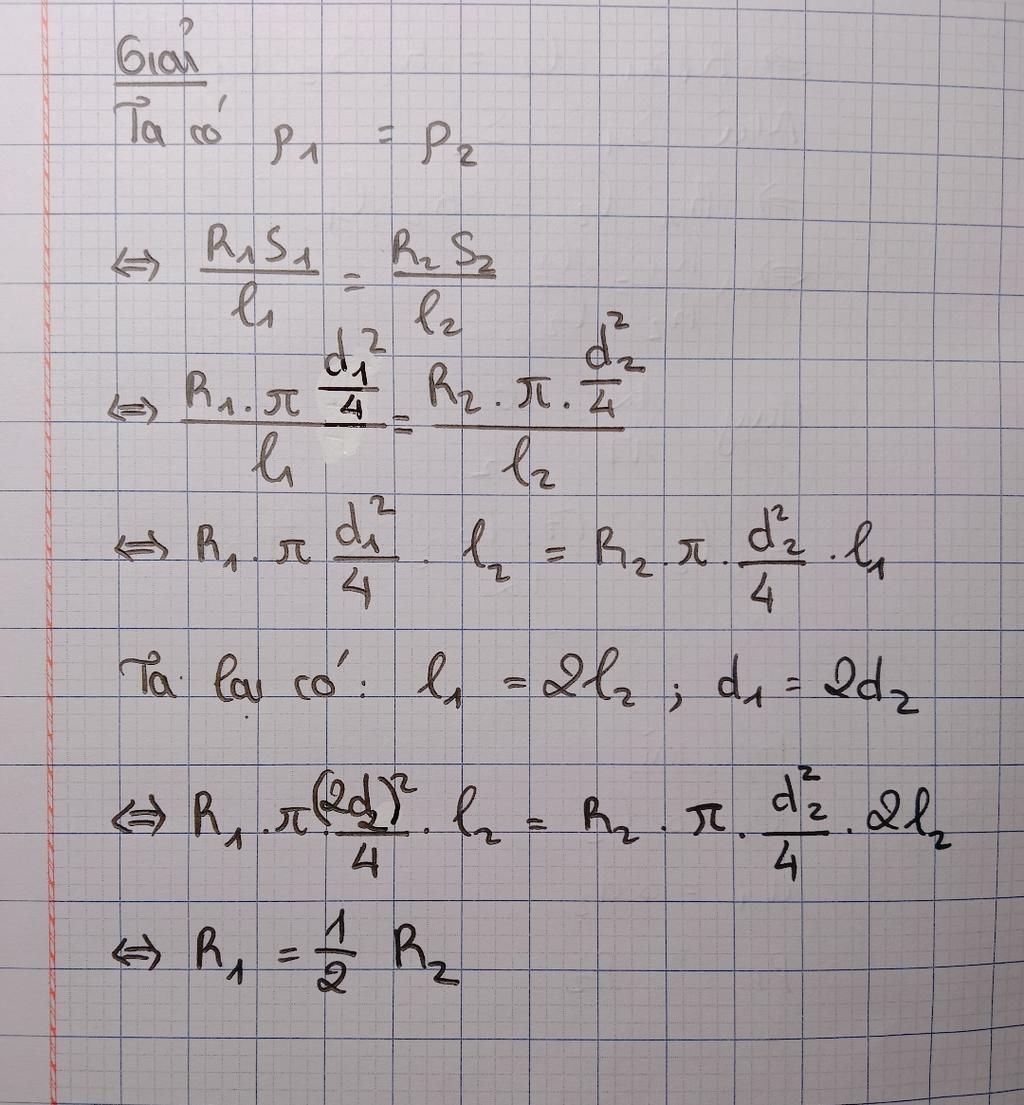 Giải
Ta có ρ₁ = ρ₂
⇔ R₁S₁/l₁ = R₂S₂/l₂
⇔ (R₁ . π d₁²/4)/l₁ = (R₂ . π . d₂²/4)/l₂
⇔ R₁ . π d₁²/4 . l₂ = R₂ . π . d₂²/4 . l₁
Ta lại có: l₁ = 2l₂ ; d₁ = 2d₂
⇔ R₁ . π (2d₂)²/4 . l₂ = R₂ . π . d₂²/4 . 2l₂
⇔ R₁ = 1/2 R₂